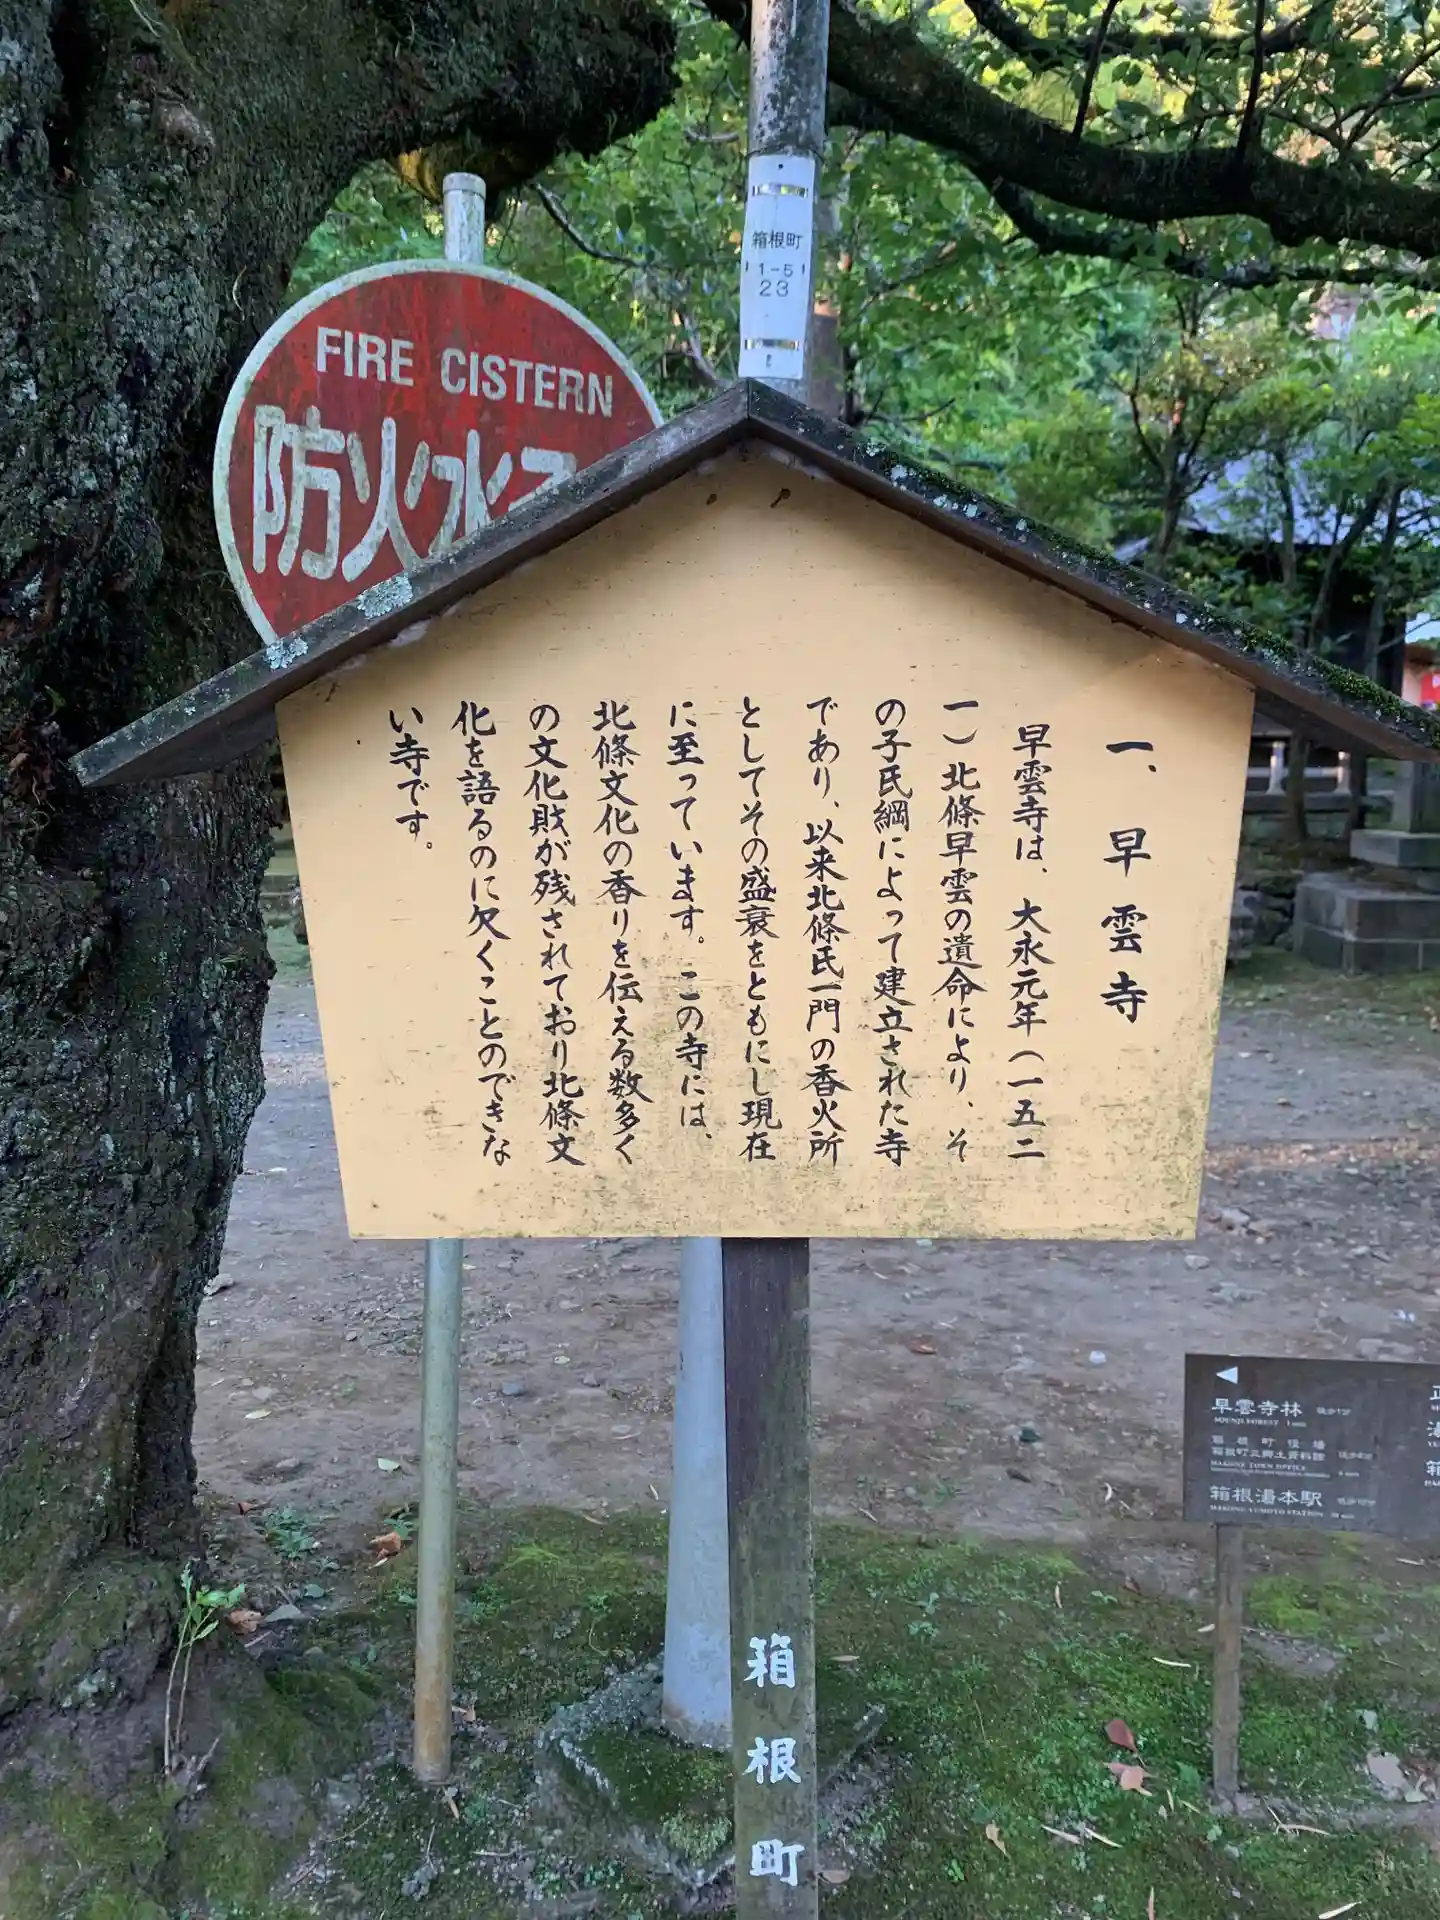 箱根町
1-5
23
FIRE CISTERN
防火水
一、早雲寺
早雲寺は、大永元年(一五二
一)北條早雲の遺命により、そ
の子氏綱によって建立された寺
であり、以来北條氏一門の香火所
としてその盛衰をともにし現在
に至っています。この寺には、
北條文化の香りを伝える数多く
の文化財が残されており北條文
化を語るのに欠くことのできな
い寺です。
箱根町
早雲寺林 徒歩1分
SOUNJI FOREST 1 min
箱根町役場
箱根町立郷土資料館
HAKONE TOWN OFFICE
箱根湯本駅
HAKONE-YUMOTO STATION